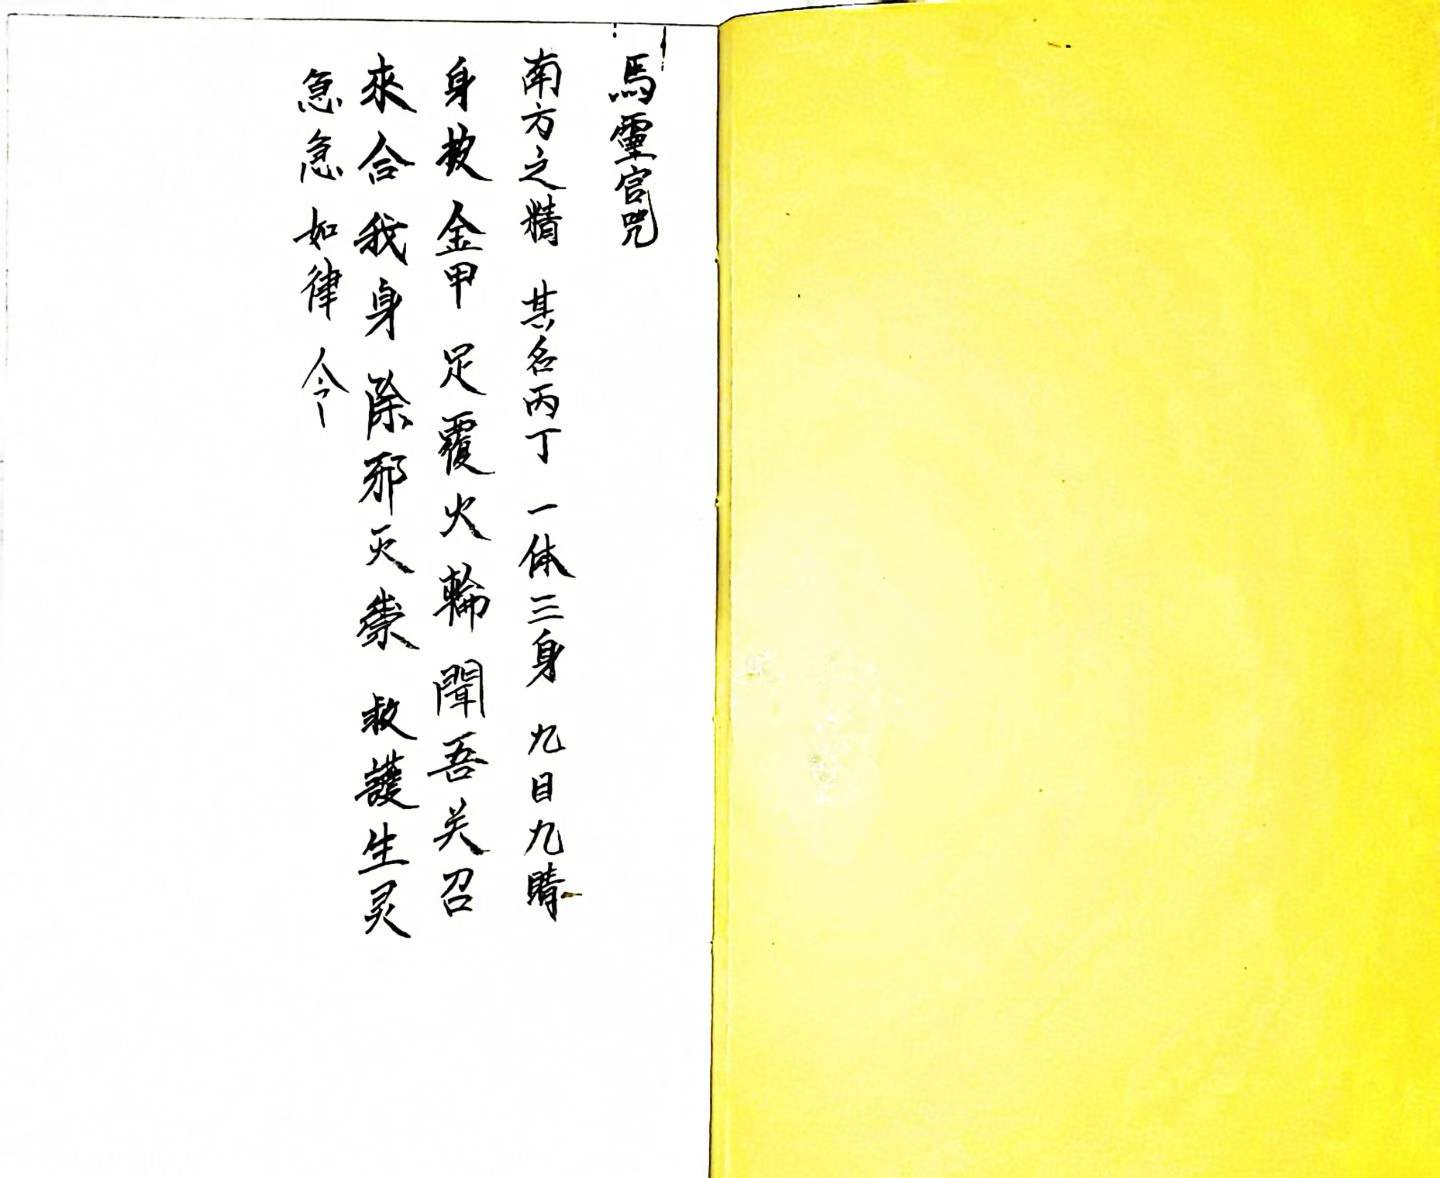 馬靈官咒
南方之精 其名丙丁 一体三身 九目九睛
身披金甲 足覆火輪 聞吾关召
來合我身 除邪灭祟 救護生灵
急急如律令